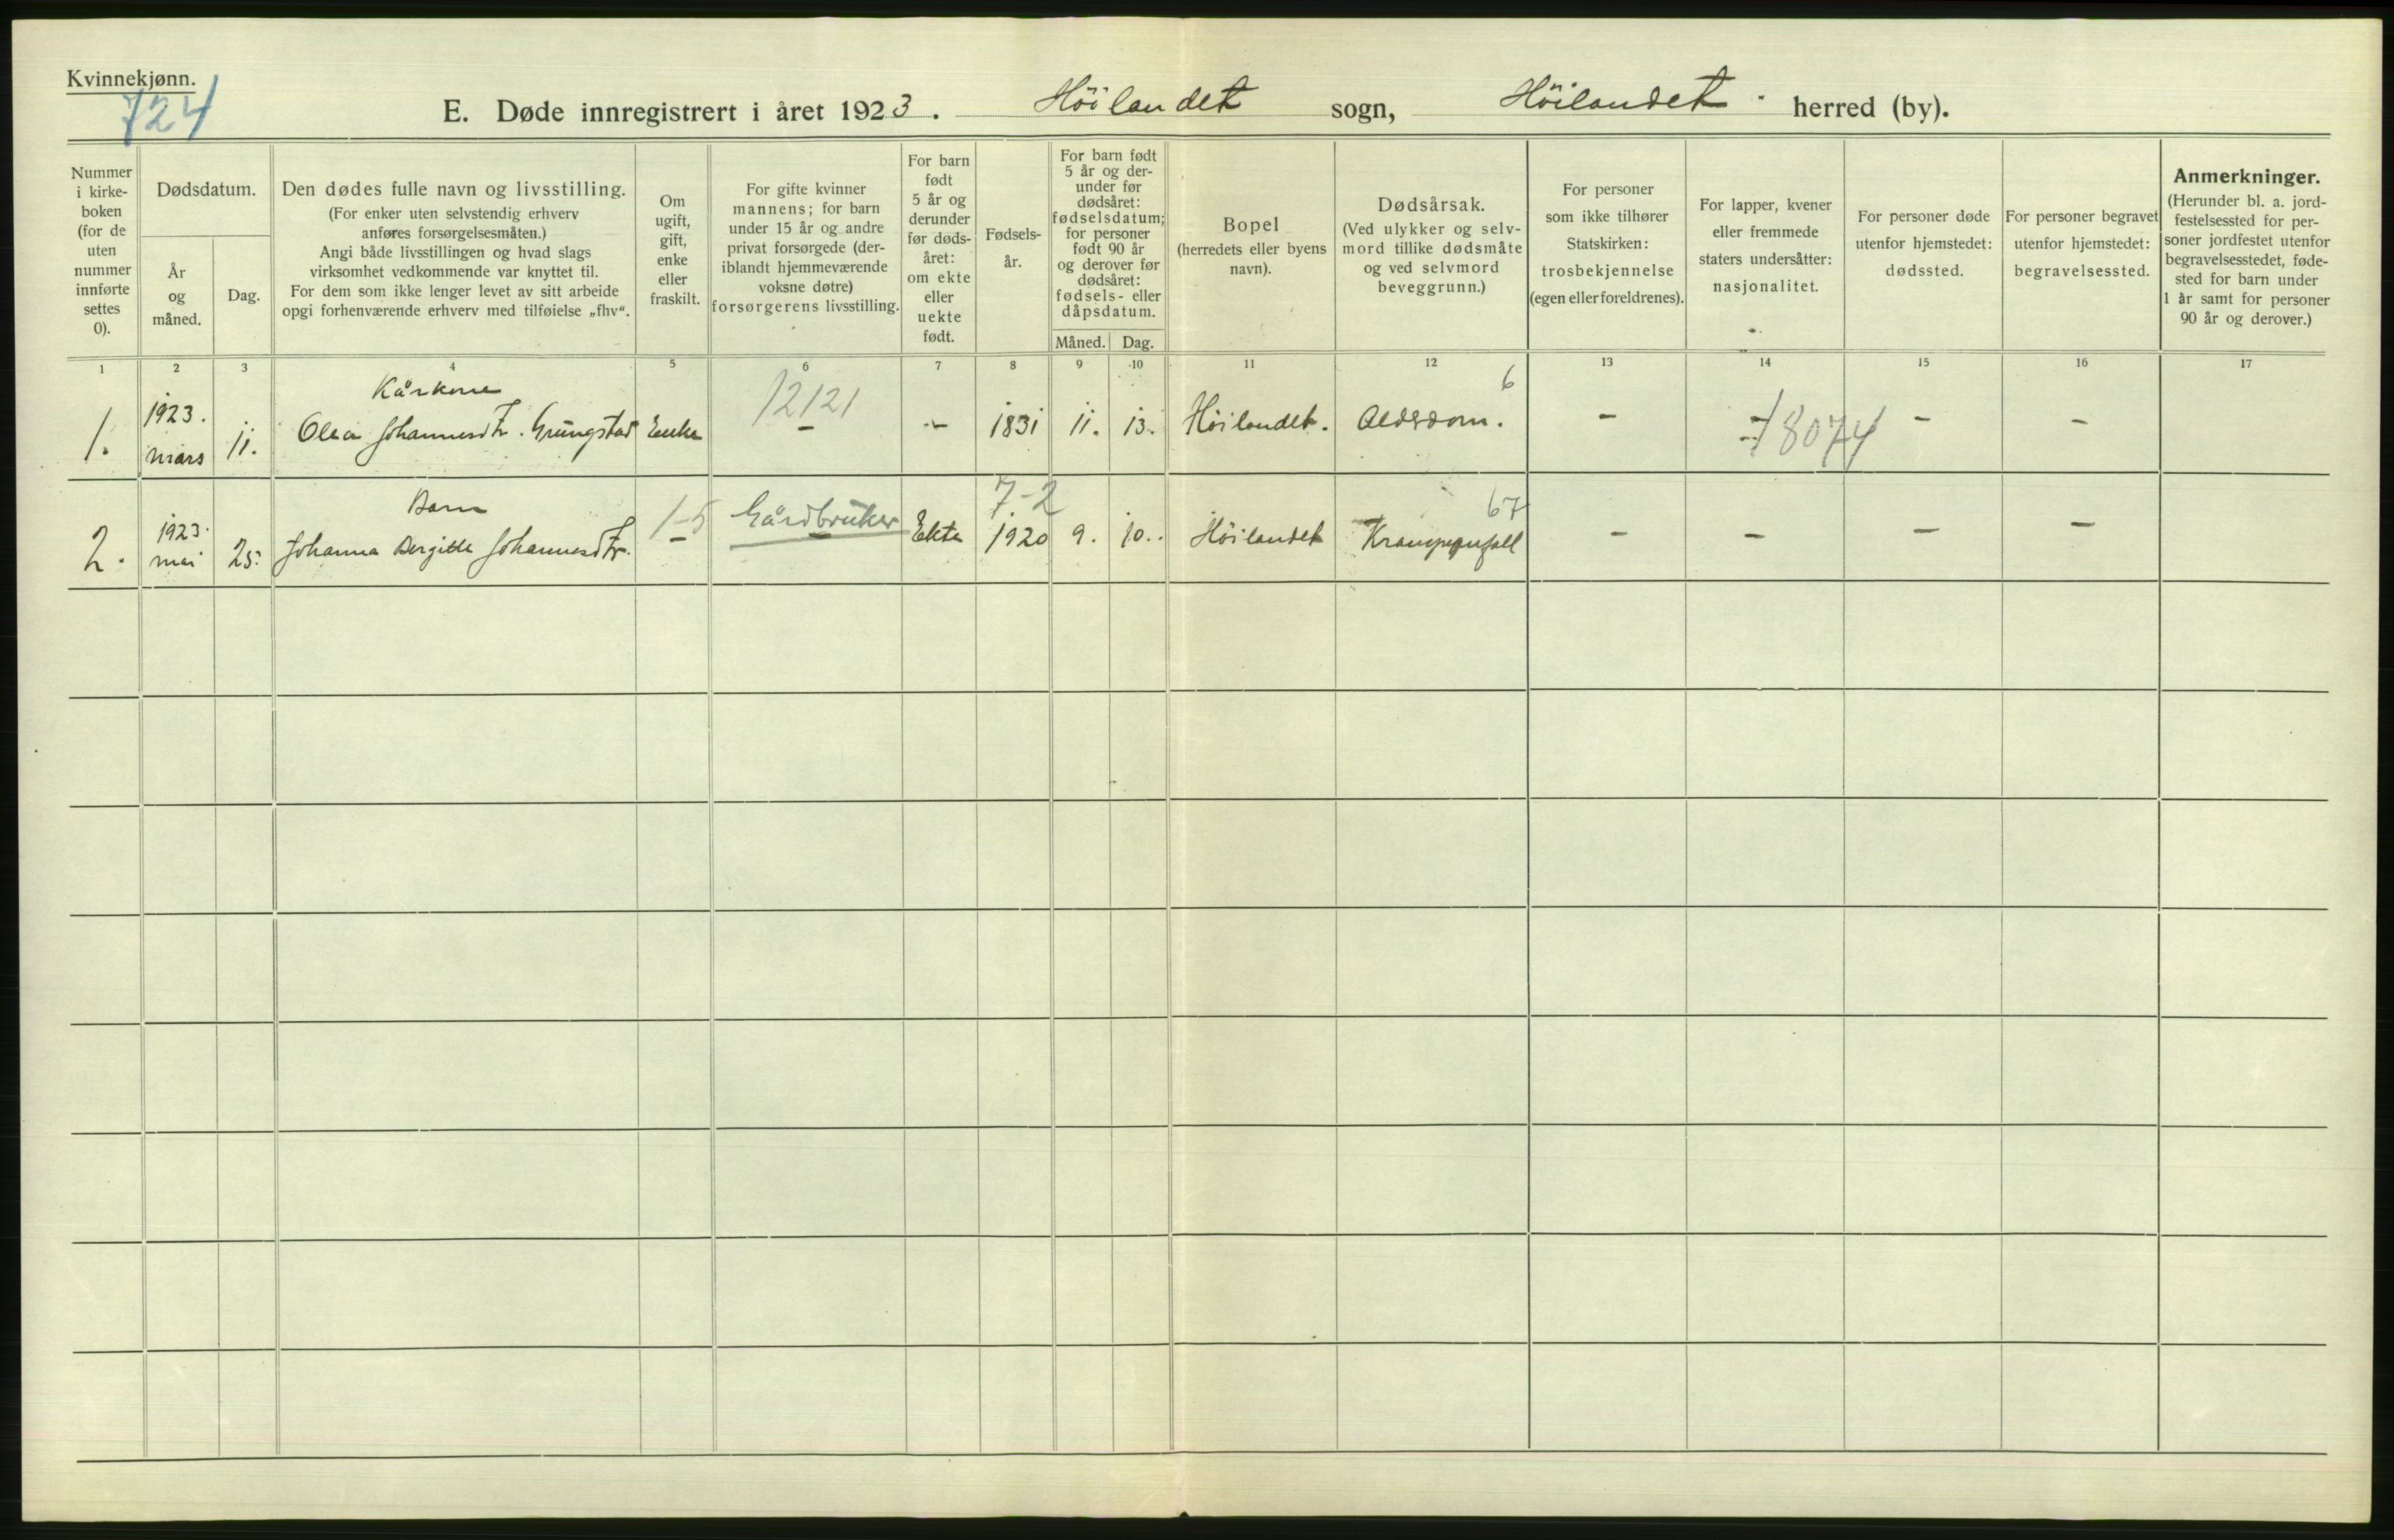 Kvinnekjønn.
724
E. Døde innregistrert i året 1923. Höilandet sogn, Höilandet herred (by).
Nummer
i kirke-
boken
(for de
uten
nummer
innførte
settes
0).
Dødsdatum.
År
og
måned.
Dag.
Den dødes fulle navn og livsstilling.
(For enker uten selvstendig erhverv
anføres forsørgelsesmåten.)
Angi både livsstillingen og hvad slags
virksomhet vedkommende var knyttet til.
For dem som ikke lenger levet av sitt arbeide
opgi forhenværende erhverv med tilføielse „fhv“.
Om
ugift,
gift,
enke
eller
fraskilt.
For gifte kvinner
mannens; for barn
under 15 år og andre
privat forsørgede (der-
iblandt hjemmeværende
voksne døtre)
forsørgerens livsstilling.
For barn
født
5 år og
derunder
før døds-
året:
om ekte
eller
uekte
født.
Fødsels-
år.
For barn født
5 år og der-
under før
dødsåret:
fødselsdatum;
for personer
født 90 år
og derover før
dødsåret:
fødsels- eller
dåpsdatum.
Måned. Dag.
Bopel
(herredets eller byens
navn).
Dødsårsak.
(Ved ulykker og selv-
mord tillike dødsmåte
og ved selvmord
beveggrunn.)
For personer
som ikke tilhører
Statskirken:
trosbekjennelse
(egen eller foreldrenes).
For lapper, kvener
eller fremmede
staters undersåtter:
nasjonalitet.
For personer døde
utenfor hjemstedet:
dødssted.
For personer begravet
utenfor hjemstedet:
begravelsessted.
Anmerkninger.
(Herunder bl. a. jord-
festelsessted for per-
soner jordfestet utenfor
begravelsesstedet, føde-
sted for barn under
1 år samt for personer
90 år og derover.)
1 2 3 4 5 6 7 8 9 10 11 12 13 14 15 16 17
Kårkone 12121 6
1. 1923. mars 11. Olea Johannesdtr. Grungstad Enke - - 1831 11. 13. Höilandet. Alderdom. - - 18074 - -
Barn 7-2 67
2. 1923. mai 25. Johanna Bergitte Johannesdtr. 1-5 - Gårdbruker - Ekte 1920 9. 10. Höilandet Krampeanfall - - - -